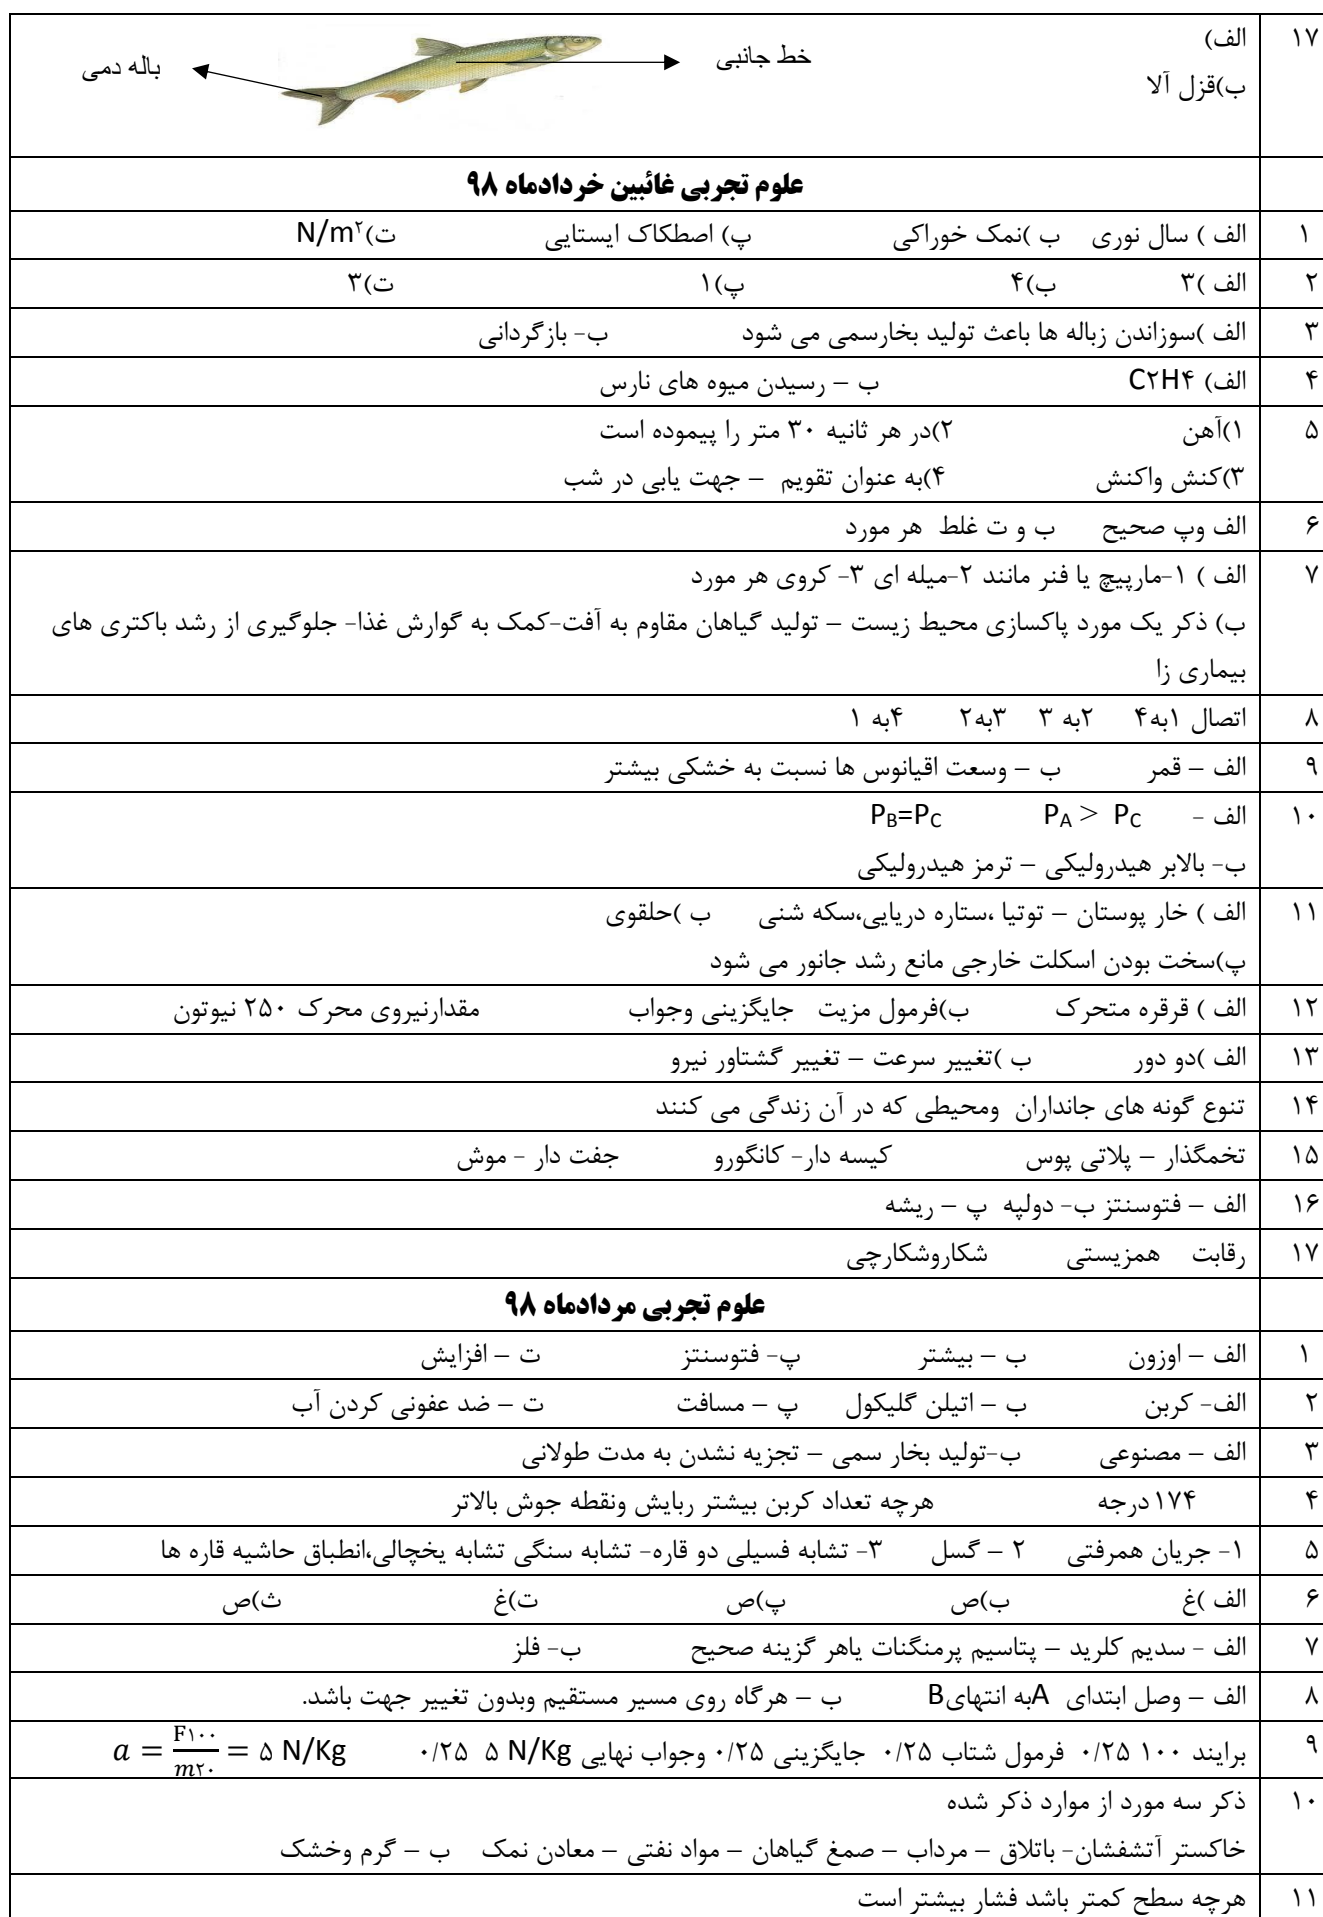 ۱۷ الف)
ب)قزل آلا
خط جانبی
باله دمی
علوم تجربی غائبین خردادماه ۹۸
۱ الف ) سال نوری ب )نمک خوراکی پ) اصطکاک ایستایی ت)N/m۲
۲ الف )۳ ب)۴ پ)۱ ت)۳
۳ الف )سوزاندن زباله ها باعث تولید بخارسمی می شود ب- بازگردانی
۴ الف) C۲H۴ ب – رسیدن میوه های نارس
۵ ۱)آهن ۲)در هر ثانیه ۳۰ متر را پیموده است
۳)کنش واکنش ۴)به عنوان تقویم – جهت یابی در شب
۶ الف وپ صحیح ب و ت غلط هر مورد
۷ الف ) ۱-مارپیچ یا فنر مانند ۲-میله ای ۳- کروی هر مورد
ب) ذکر یک مورد پاکسازی محیط زیست – تولید گیاهان مقاوم به آفت-کمک به گوارش غذا- جلوگیری از رشد باکتری های
بیماری زا
۸ اتصال ۱به۴ ۲به ۳ ۳به۲ ۴به ۱
۹ الف – قمر ب – وسعت اقیانوس ها نسبت به خشکی بیشتر
۱۰ الف - PA > PC PB=PC
ب- بالابر هیدرولیکی – ترمز هیدرولیکی
۱۱ الف ) خار پوستان – توتیا ،ستاره دریایی،سکه شنی ب )حلقوی
پ)سخت بودن اسکلت خارجی مانع رشد جانور می شود
۱۲ الف ) قرقره متحرک ب)فرمول مزیت جایگزینی وجواب مقدارنیروی محرک ۲۵۰ نیوتون
۱۳ الف )دو دور ب )تغییر سرعت – تغییر گشتاور نیرو
۱۴ تنوع گونه های جانداران ومحیطی که در آن زندگی می کنند
۱۵ تخمگذار – پلاتی پوس کیسه دار- کانگورو جفت دار - موش
۱۶ الف – فتوسنتز ب- دولپه پ – ریشه
۱۷ رقابت همزیستی شکاروشکارچی
علوم تجربی مردادماه ۹۸
۱ الف – اوزون ب – بیشتر پ- فتوسنتز ت – افزایش
۲ الف- کربن ب – اتیلن گلیکول پ – مسافت ت – ضد عفونی کردن آب
۳ الف – مصنوعی ب-تولید بخار سمی – تجزیه نشدن به مدت طولانی
۴ ۱۷۴درجه هرچه تعداد کربن بیشتر ربایش ونقطه جوش بالاتر
۵ ۱- جریان همرفتی ۲ – گسل ۳- تشابه فسیلی دو قاره- تشابه سنگی تشابه یخچالی،انطباق حاشیه قاره ها
۶ الف )غ ب)ص پ)ص ت)غ ث)ص
۷ الف - سدیم کلرید – پتاسیم پرمنگنات یاهر گزینه صحیح ب- فلز
۸ الف – وصل ابتدای Aبه انتهایB ب – هرگاه روی مسیر مستقیم وبدون تغییر جهت باشد.
۹ برایند ۱۰۰ ۰/۲۵ فرمول شتاب ۰/۲۵ جایگزینی ۰/۲۵ وجواب نهایی ۵ N/Kg ۰/۲۵ a = F۱۰۰/m۲۰ = ۵ N/Kg
۱۰ ذکر سه مورد از موارد ذکر شده
خاکستر آتشفشان- باتلاق – مرداب – صمغ گیاهان – مواد نفتی – معادن نمک ب – گرم وخشک
۱۱ هرچه سطح کمتر باشد فشار بیشتر است